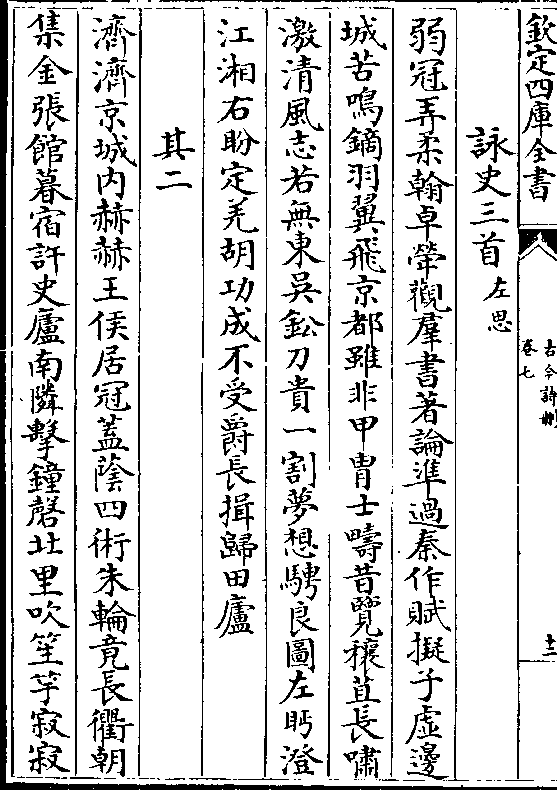 欽定四庫全書
古今詩刪
卷七
十二
詠史三首 左思
弱冠弄柔翰卓犖觀羣書著論準過秦作賦擬子虛邊
城苦鳴鏑羽翼飛京都雖非甲冑士疇昔覽穰苴長嘯
激清風志若無東吳鈆刀貴一割夢想騁良圖左眄澄
江湘右盼定羌胡功成不受爵長揖歸田廬
其二
濟濟京城內赫赫王侯居冠蓋蔭四術朱輪竟長衢朝
集金張館暮宿許史廬南隣擊鐘磬北里吹笙竽寂寂